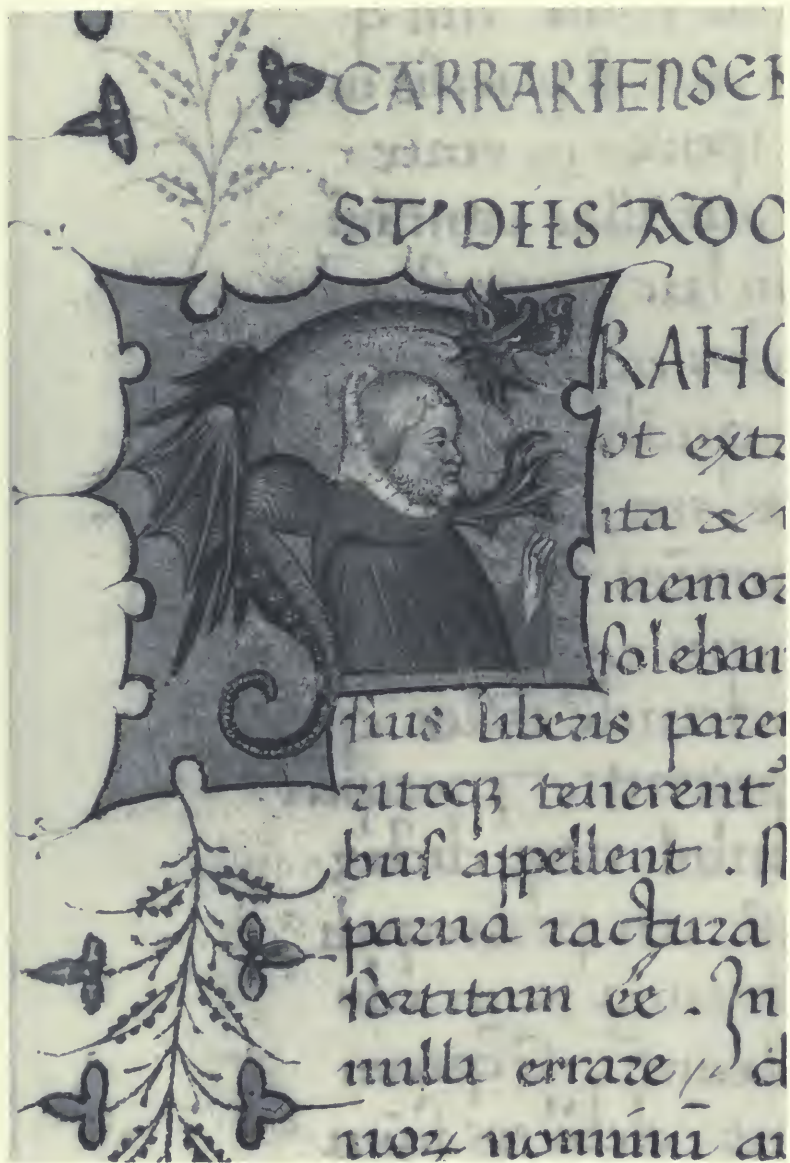 CARRARIENSE
STVDIIS ADO
FRAH
ut ext
ita & 
memor
soleban
sius liberis pare
ritoq; tenerent
bus appellent .
parua iactura
sortitam eē . In
nulli errare /
uoꝝ nominū au